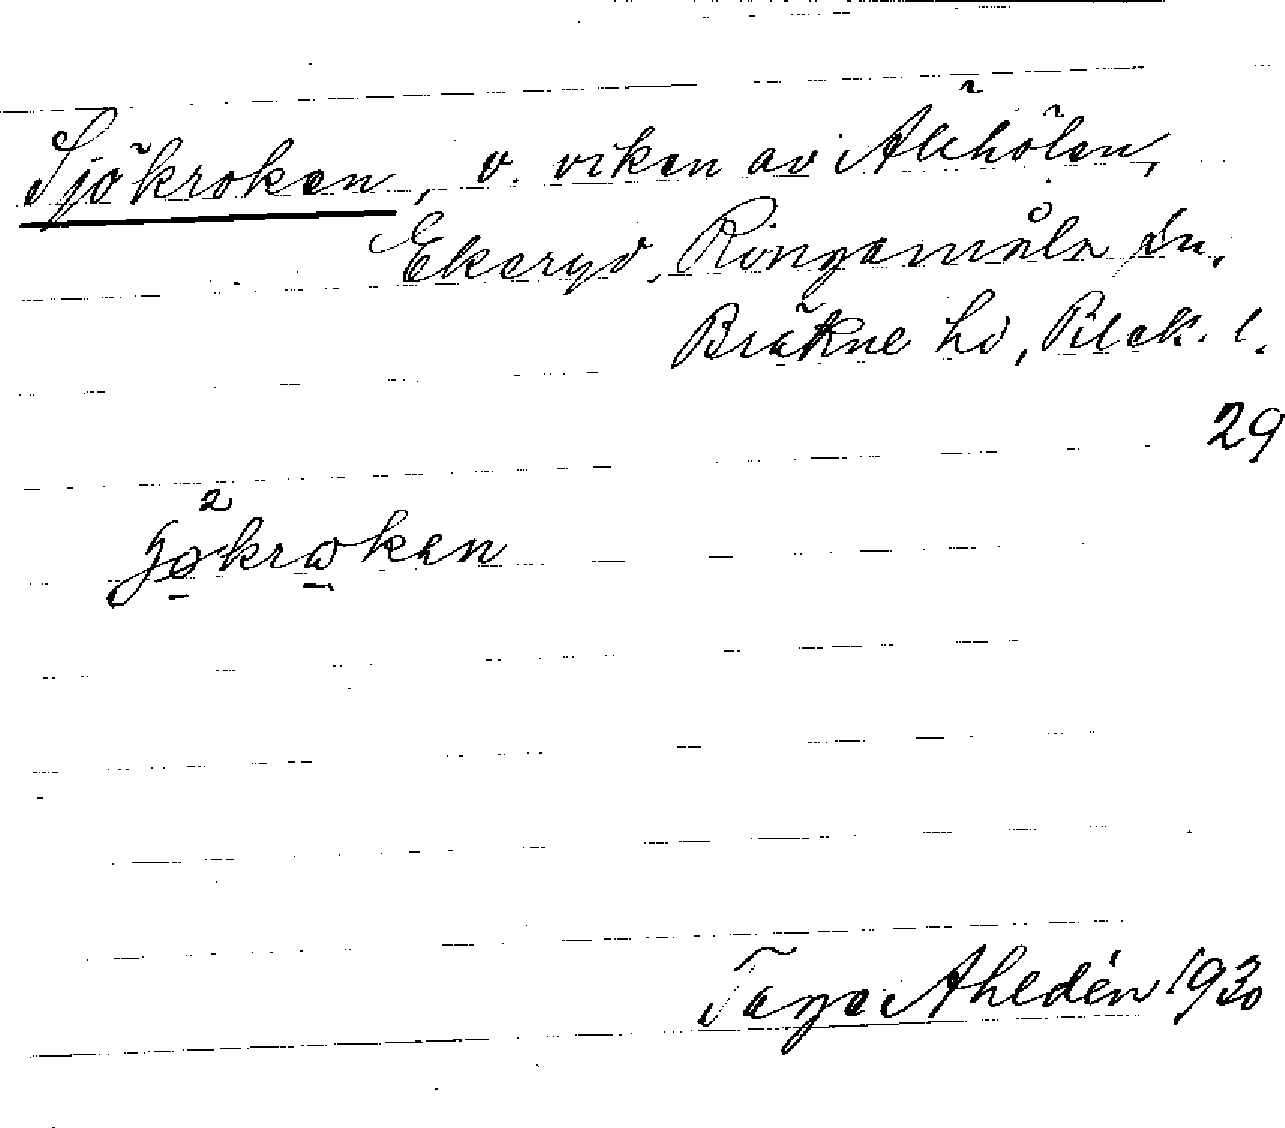 Sjökroken, v. viken av Älehölen,
Ekeryd, Ringamåla sn.
Bräkne hd, Blek. l.
29
2
jøkrωken
Tage Ahldén 1930